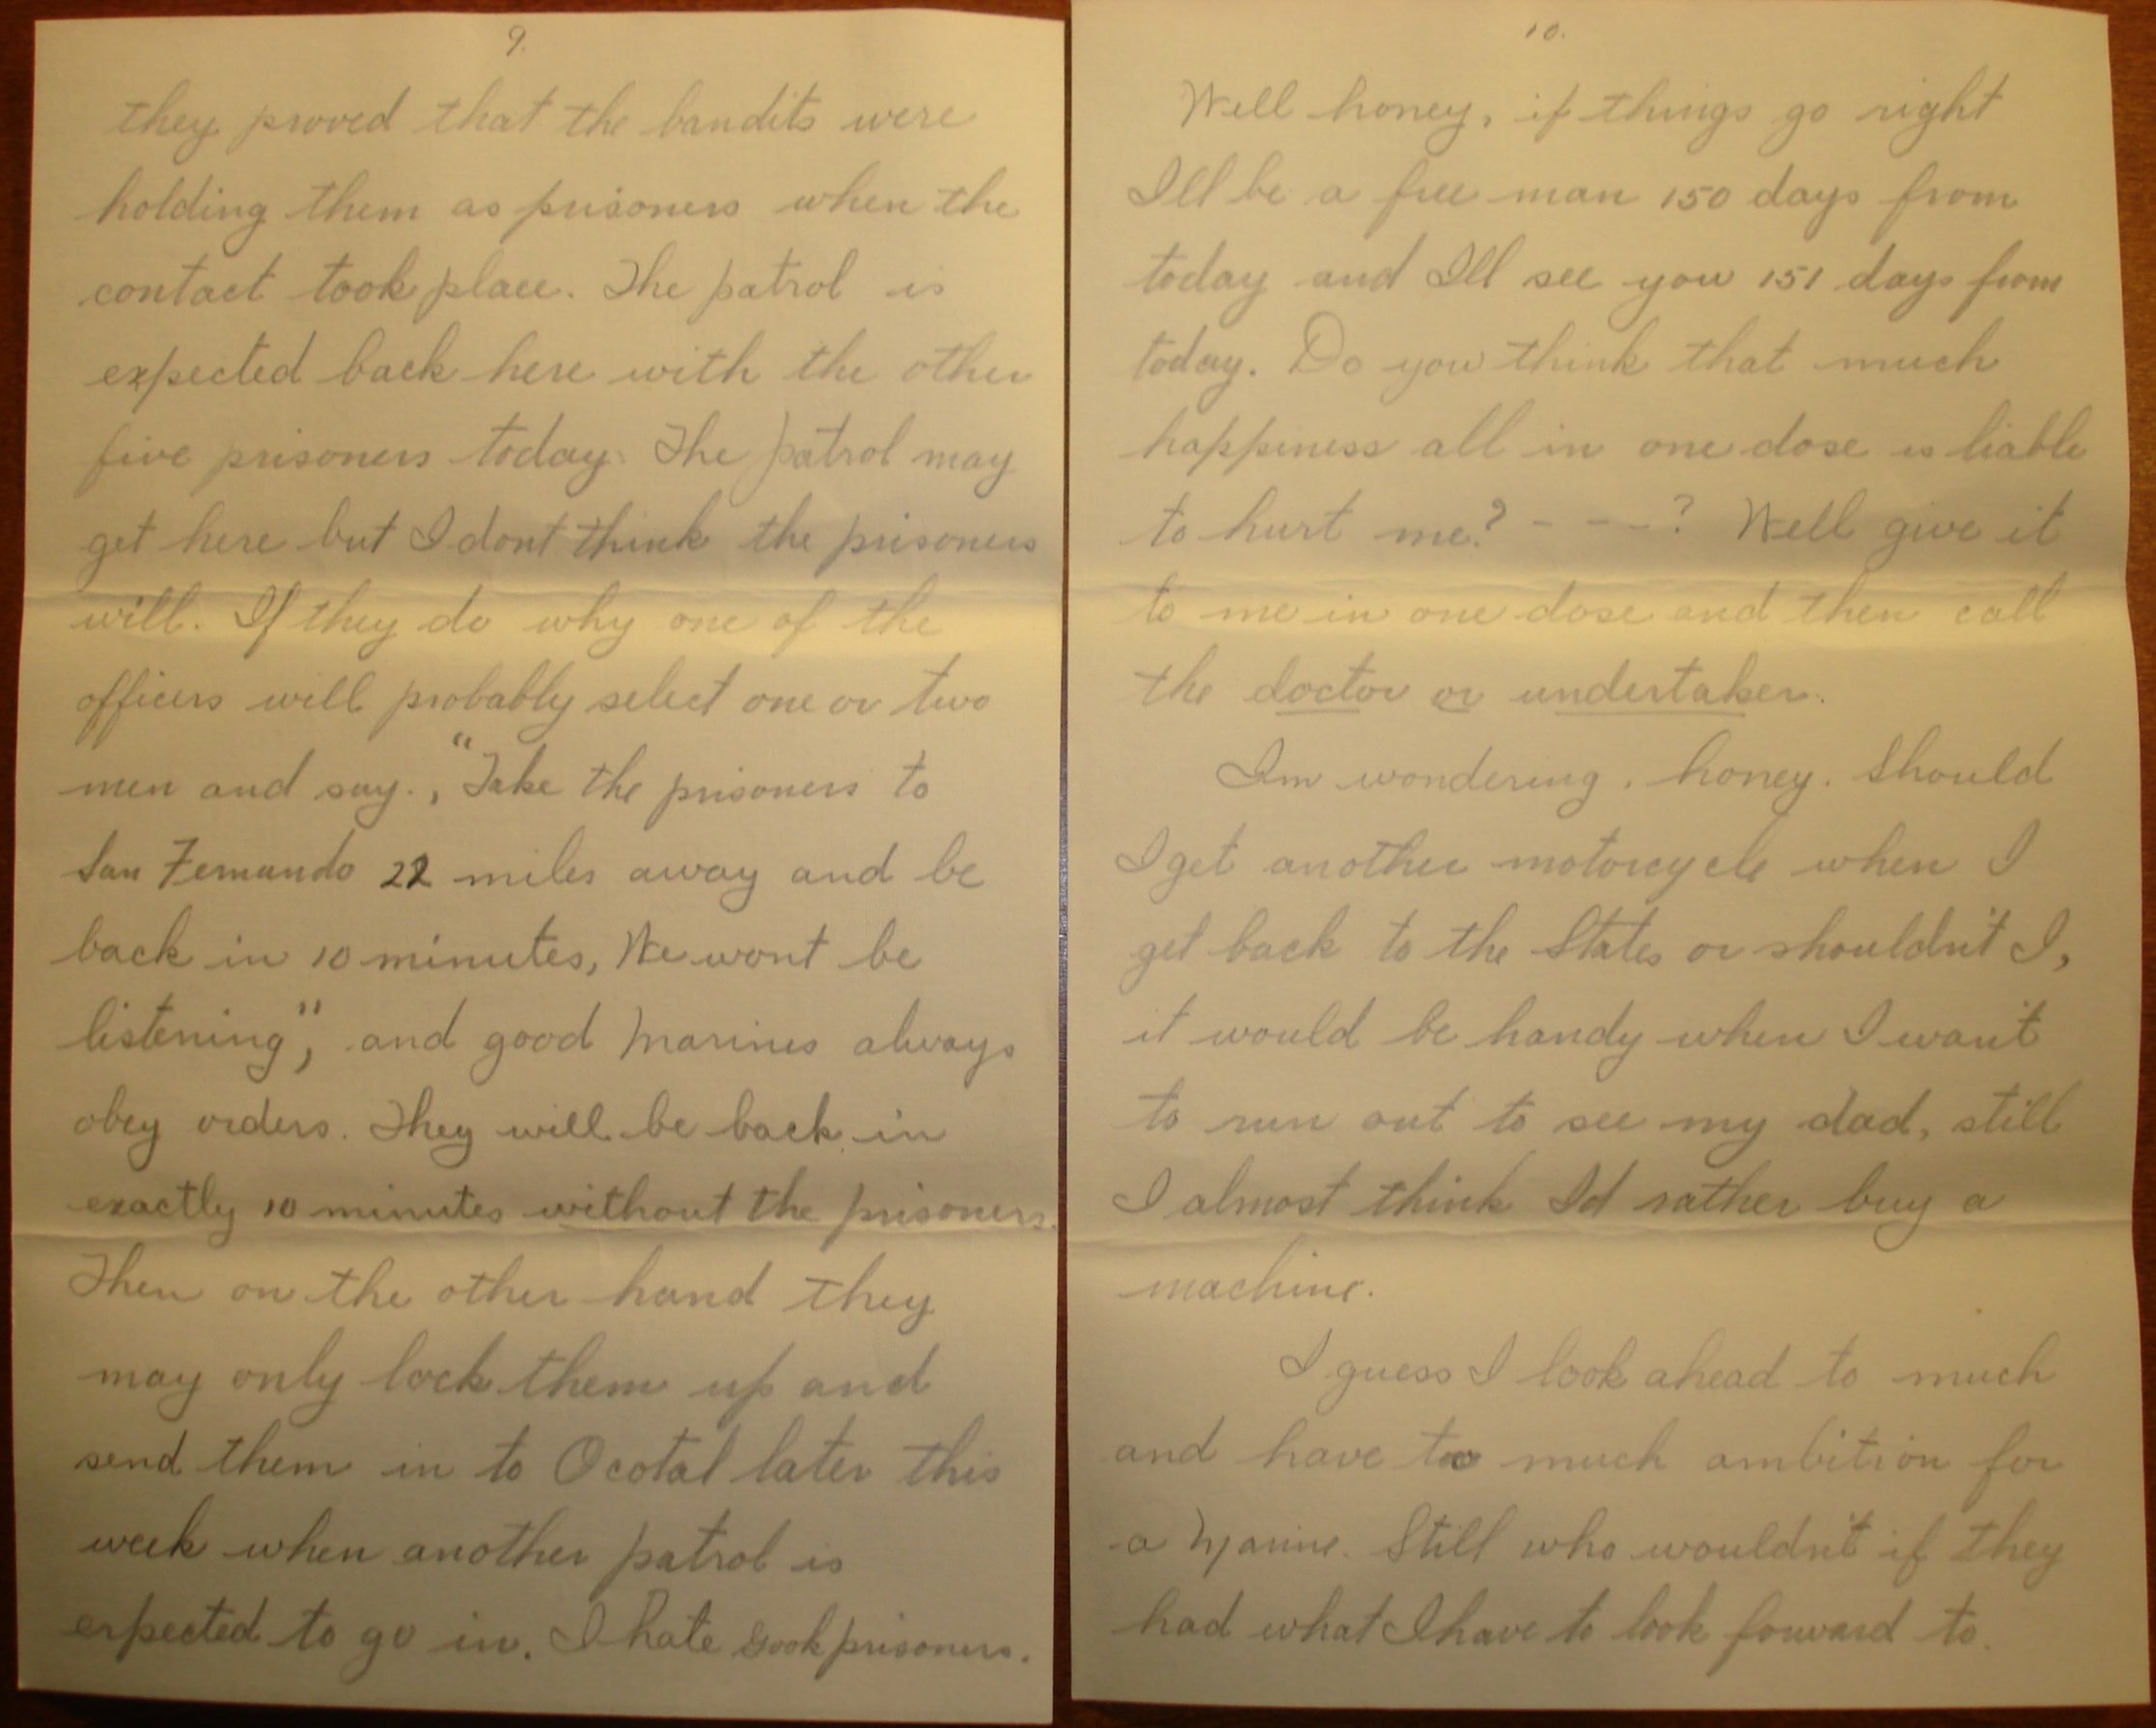 9.
they proved that the bandits were
holding them as prisoners when the
contact took place. The patrol is
expected back here with the other
five prisoners today. The patrol may
get here but I dont think the prisoners
will. If they do why one of the
officers will probably select one or two
men and say., "Take the prisoners to
San Fernando 22 miles away and be
back in 10 minutes, We wont be
listening", and good Marines always
obey orders. They will be back in
exactly 10 minutes without the prisoners.
Then on the other hand they
may only lock them up and
send them in to Ocotal later this
week when another patrol is
expected to go in. I hate gook prisoners.
10.
Well honey, if things go right
I'll be a free man 150 days from
today and I'll see you 151 days from
today. Do you think that much
happiness all in one dose is liable
to hurt me? - - -? Well give it
to me in one dose and then call
the doctor or undertaker.
Im wondering, honey. Should
I get another motorcycle when I
get back to the States or shouldn't I,
it would be handy when I want
to run out to see my dad, still
I almost think I'd rather buy a
machine.
I guess I look ahead to much
and have too much ambition for
a Marine. Still who wouldn't if they
had what I have to look forward to.